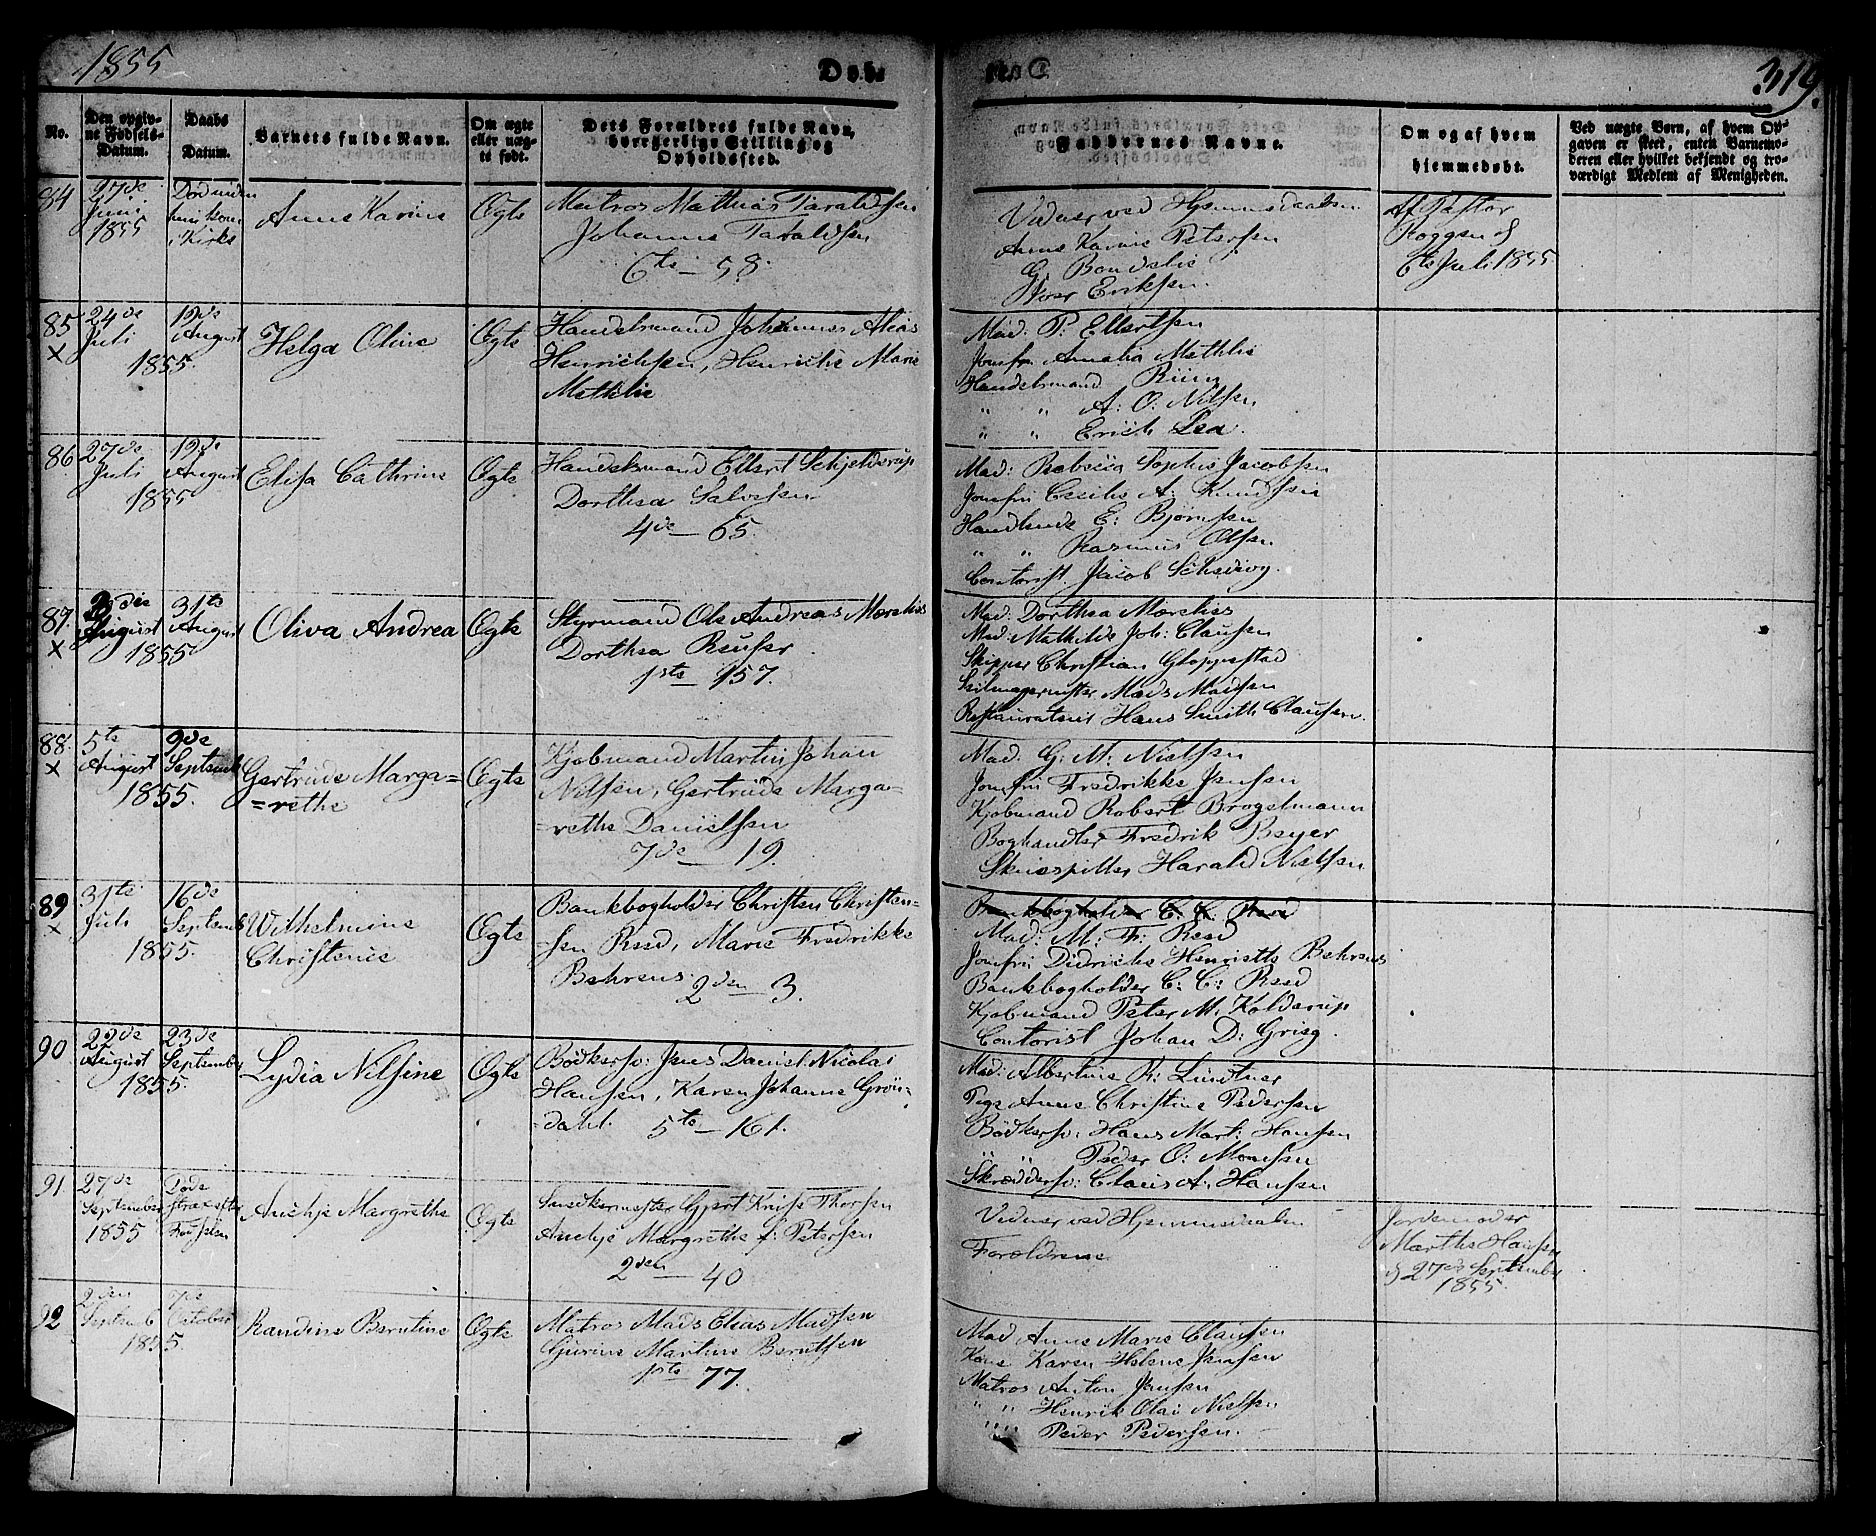 1855
Døbte
319.
No.
Den opgivne Fødsels-Datum.
Daabs Datum.
Barnets fulde Navn.
Om ægte eller uægte født.
Dets Forældres fulde Navn, borgerlige Stilling og Opholdssted.
Faddernes Navne.
Om og af hvem hjemmedøbt.
Ved uægte Børn, af hvem Opgaven er skeet, enten Barnemoderen eller hvilket bekjendt og troværdigt Medlem af Menigheden.
84
27de Juni 1855
Død uden
i Kirke
Anne Karine
Ægte
Matros Mathias Taraldsen
Johanne Taraldsen
6te – 58.
Vidner ved Hjemmedaaben
Anne Karine Petersen
G. Bondelie
Iver Eriksen.
Af Pastor
Koggen d
6te Juli 1855
85
×
24de Juli
12de August
1855.
Helga Oline
Ægte
Handelsmand Johannes Alias
Henrichsen, Henriche Marie
Mathilie
Mad: P: Ellertsen
Jomfru Amalia Mathlie
Handelsmand Riim
" " A: O: Nilsen
" " Erich Lea.
86
27de Juli
12de August
1855
Elisa Cathrine
Ægte
Handelsmand Ellert Schjelderup
Dorthea Salvesen
4de – 65.
Mad: Rebecca Sophie Jacobsen
Jomfru Cecilie A: Knudsen
Handlende E: Bjørnsen
" " Rasmus Olsen
Contorist Jacob Scheivig.
87.
×
August
31te August
1855
Oliva Andrea
Ægte
Styrmand Ole Andreas Mærelies
Dorthea Reuser
1ste – 157.
Mad: Dorthea Mærelies
Mad: Mathilde Joh: Clausen
Skipper Christian Gloppestad
Seilmagermester Mads Madsen
Restaurateur Hans Smith Clausen.
88.
×
5te August
9de Septemb
1855.
Gertrude Marga=
=rethe
Ægte
Kjøbmand Martin Johan
Nilsen, Gertrude Marga=
=rethe Danielsen
7de – 19.
Mad. G: M: Nielsen
Jomfru Fredrikke Jensen
Kjøbmand Robert Brogelmann
Boghandler Fredrik Beyer
Skuespiller Harald Nielsen
89
×
31te Juli
16de Septemb
1855.
Wilhelmine
Christence
Ægte
Bankbogholder Christen Christen=
=sen Reed, Marie Fredrikke
Behrens.
2den – 3.
Bankbogholder C. C. Reed
Mad: M: F: Reed
Jomfru Didriche Henriette Behrens
Bankbogholder C: C: Reed
Kjøbmand Peter M. Kolderup
Contorist Johan D: Grieg.
90
22de August
23de September
1855.
Lydia Nilsine
Ægte
Bødkersv: Jens Daniel Nicolai
Hansen, Karen Johanne Grøn-
=dahl. 5te – 161.
Mad: Albertine R: Lindtner
Pige Anne Christine Pedersen
Bødkersv: Hans Mart: Hansen
" " Peder O: Monsen
Skreddersv: Claus A: Hansen
91
27de September 1855
Døde strax efter Fødselen
Anchje Margrethe
Ægte
Snedkermester Gjert Knife Thorsen
Anchje Margrethe f: Petersen
2den – 40
Vidner ved Hjemmedaaben
Forældrene
Jordemoder
Marthe Hansen
d 27de September
1855.
92
2den Septemb
7de October
1855.
Randine Berntine
Ægte
Matros Mads Elias Madsen
Gurine Martine Berntsen
1ste 77.
Mad Anne Marie Clausen
Kone Karen Helene Jensen
Matros Anton Jensen
" " Henrik Olai Nielsen
" " Peder Pedersen.